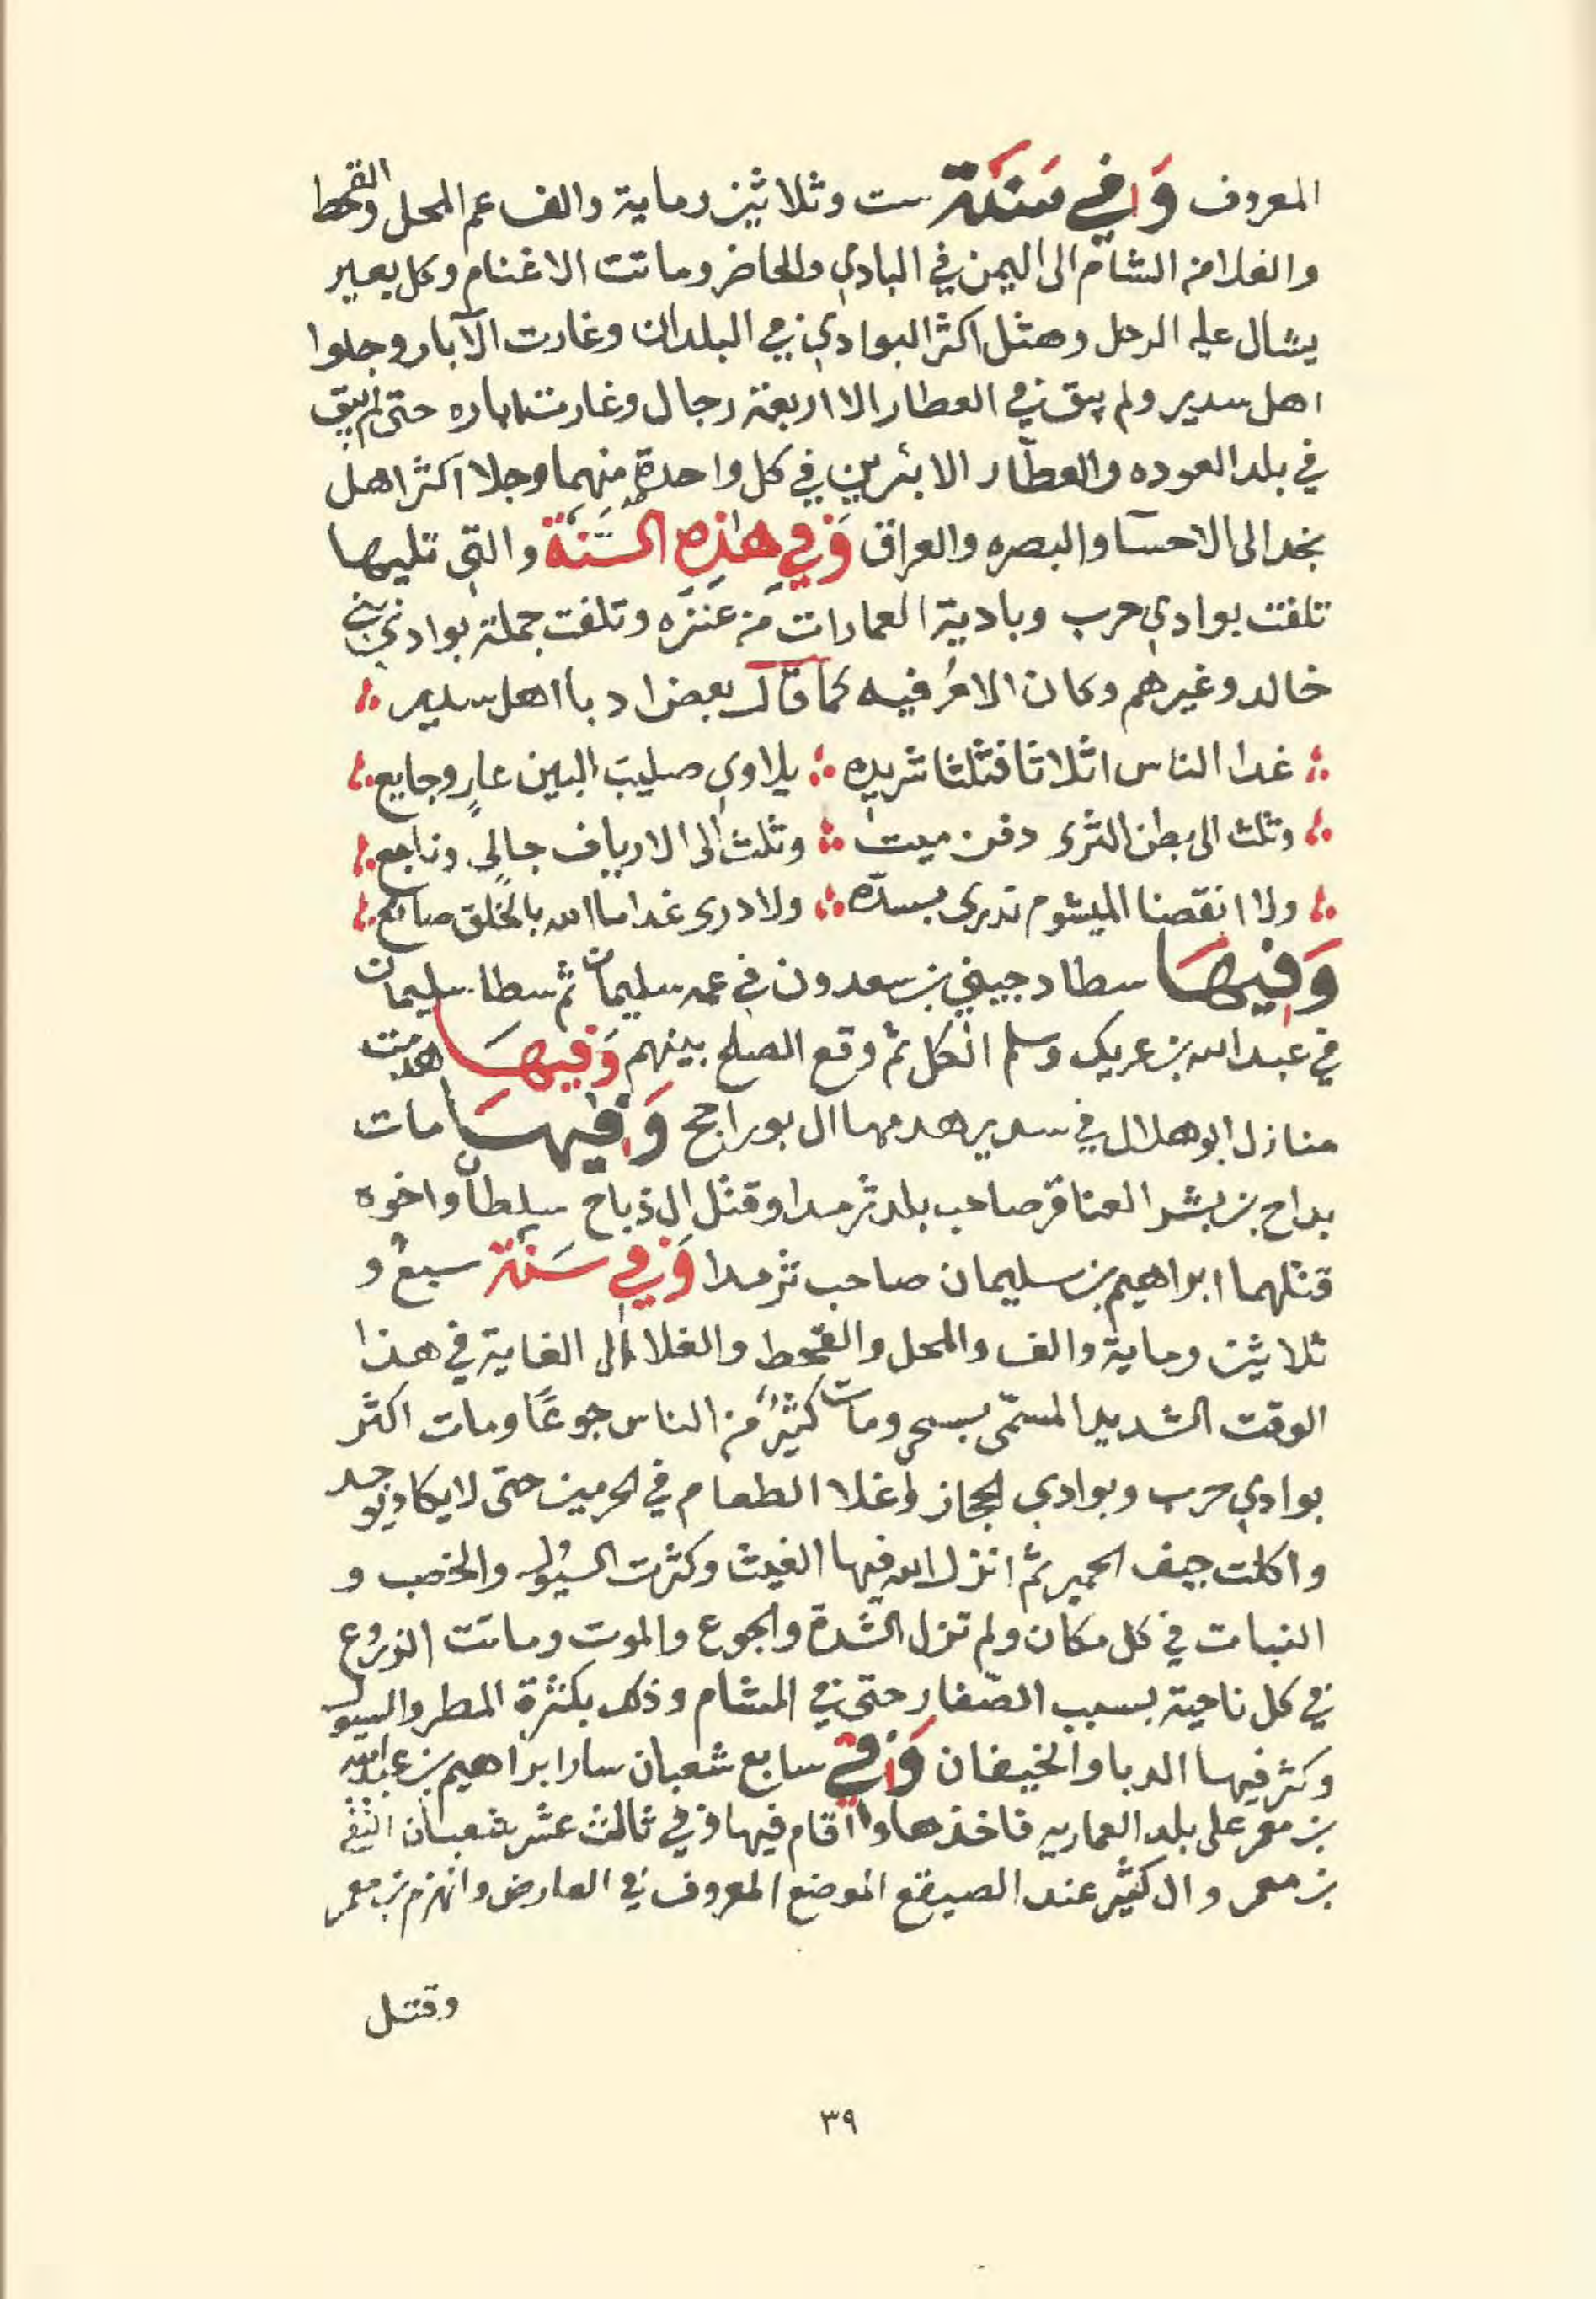 المعروف وَفي سَنَة ست وثلاثين وماية والف عم المحل والقحط
والغلا من الشام الى اليمن في البادي والحاضر وماتت الاغنام وكل بعير
يشال عليه الرحل وهثل اكثر البوادي في البلدان وغارت الآبار وجلوا
اهل سدير ولم يبق في العطار الا اربعة رجال وغارت اباره حتى لم يبق
في بلد العوده والعطّار الا بئرين في كل واحدة منهما وجلا اكثر اهل
نجد الى الاحسا والبصره والعراق وَفي هذِهِ السَّنَة والتي تليها
تلفت بوادي حرب وبادية العمارات من عنزه وتلفت جملة بوادي بني
خالد وغيرهم وكان الامرُ فيه كما قال بعض ادبا اهل سدير
غدا الناس اثلاثا فثلثا شريده يلاوي صليب البين عارٍ وجايع
وثلث الى بطن الثرى دفن ميت وثلث الى الارياف جالٍ وناجع
ولا انقصنا الميشوم تدرى بسدّه ولا درى غدا ما الله بالخلق صانع
وَفيهَا سطا دجيني بن سعدون في عمه سليمان ثم سطا سليمان
في عبدالله بن عريك وسلم الكل ثم وقع الصلح بينهم وَفيهَا هدمت
منازل ابوهلال في سدير هدمها ال بوراجح وَفيهَا مات
بداح بن بشر العناقر صاحب بلد ثرمدا وقتل ال ذباح سلطان واخوه
قتلهما ابراهيم بن سليمان صاحب ثرمدا وَفي سَنَة سبعُ و
ثلاثين وماية والف والمحل والقحط والغلا الى الغاية في هذا
الوقت الشديد المسمّى بسحي ومات كثيرٌ من الناس جوعًا ومات اكثر
بوادي حرب وبوادي الحجاز واغلا الطعام في الحرمين حتى لا يكاد يوجد
واكلت جيف الحمير ثم انزل الله فيها الغيث وكثرت السيول والخصب و
النبات في كل مكان ولم تزل الشدة والجوع والموت وماتت الزروع
في كل ناحية بسبب الصّفار حتى في الشام وذلك بكثرة المطر والسيول
وكثر فيها الدبا والخيفان وَفي سابع شعبان سار ابراهيم بن عبدالله
بن معمر على بلد العماريه فاخذها واقام فيها وفي ثالث عشر شعبان التقى
بن معمر وال كثير عند الصيقع الموضع المعروف في العارض وانهزم بن معمر
وقتل
٣٩